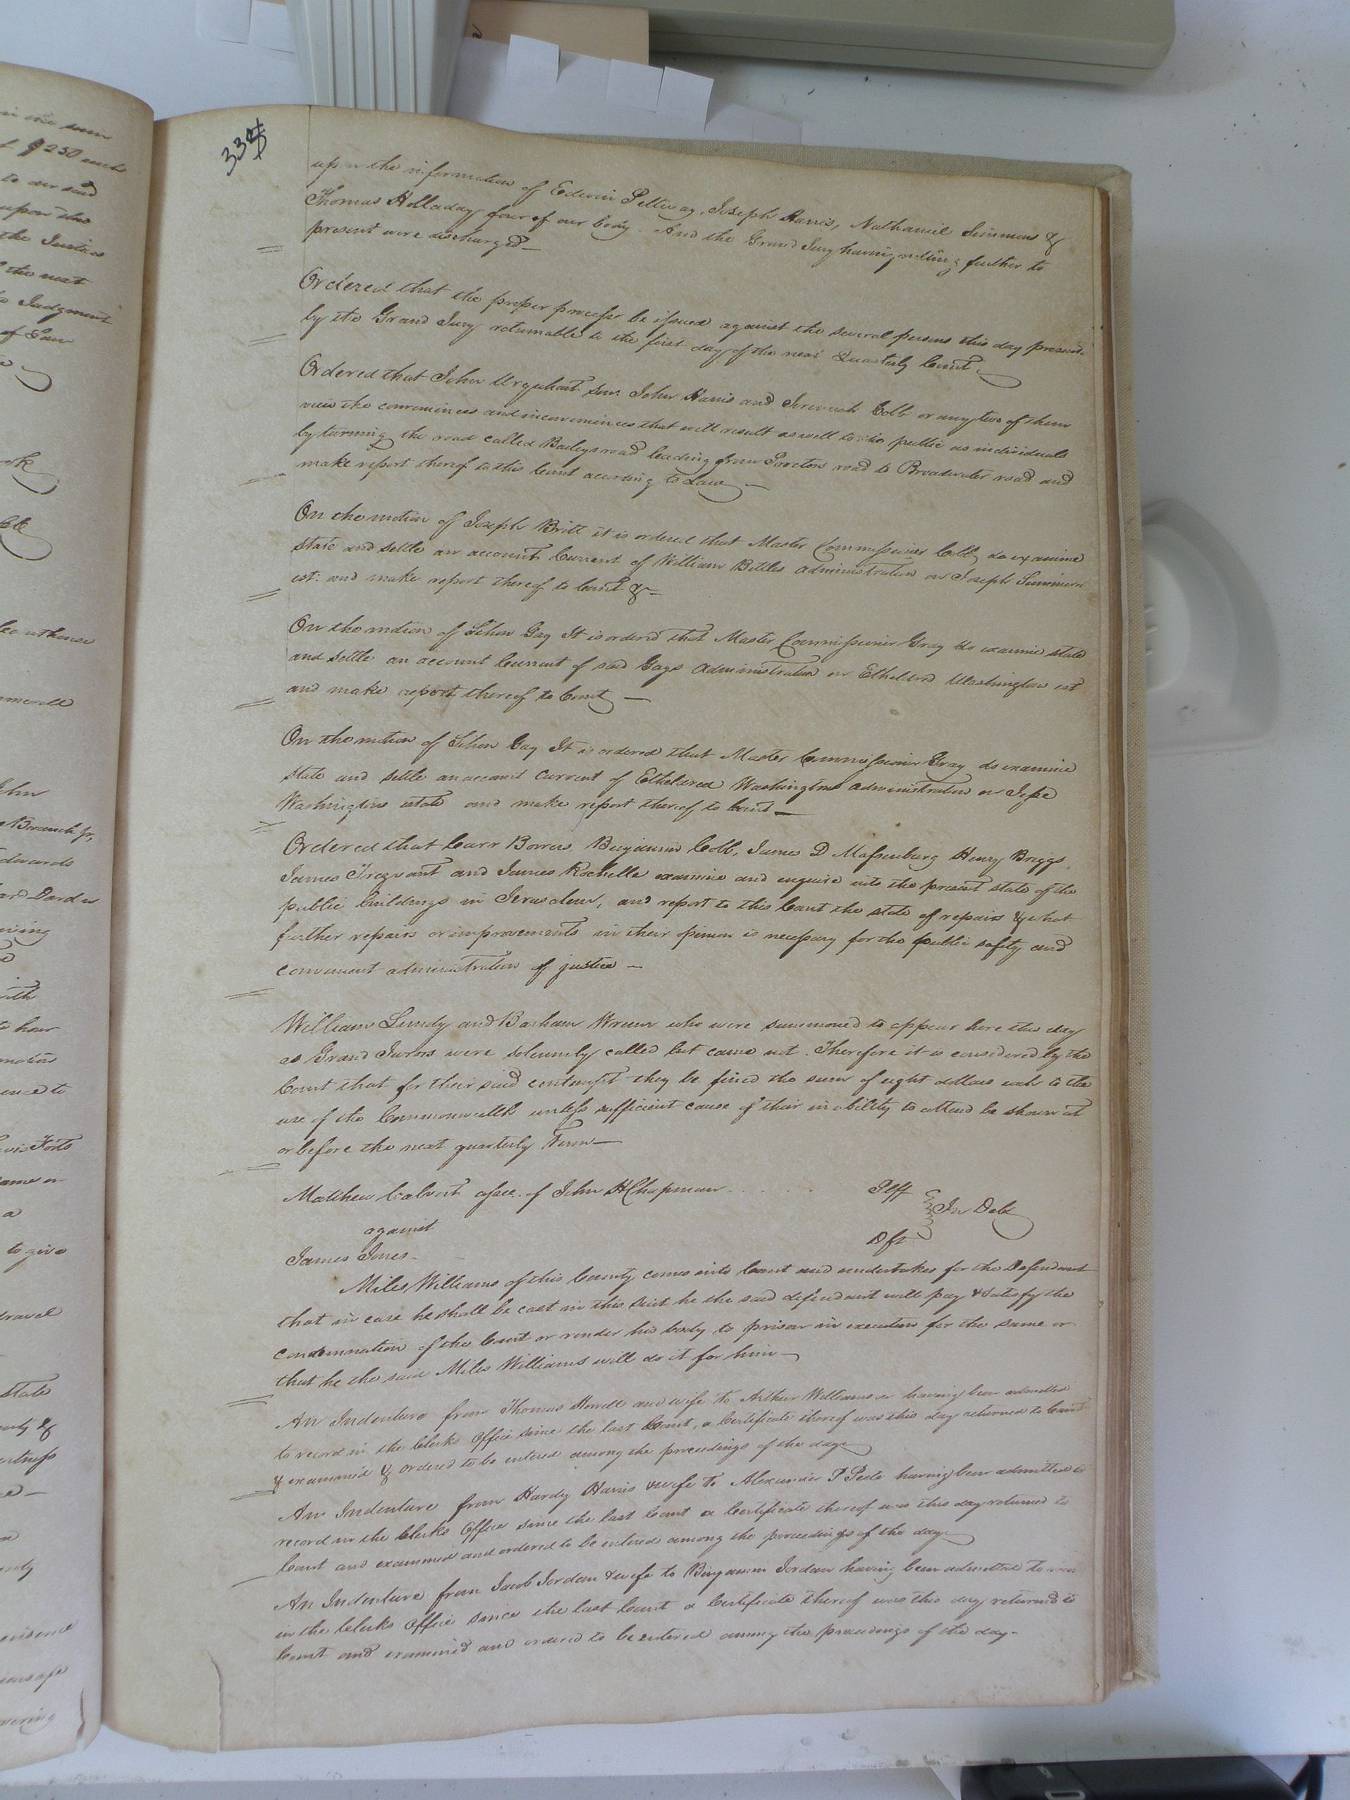 334
upon the information of Edwin Pettway, Joseph Harris, Nathaniel Simmons &
Thomas Holladay four of our body. And the Grand Jury having nothing further to
present were discharged —
Ordered that the proper process be issued against the several persons this day presented
by the Grand Jury returnable to the first day of the next Quarterly Court.
Ordered that John Urquhart Senr John Harris and Jeremiah Cobb or any two of them
view the conveniences and inconveniences that will result as well to the public as individuals
by turning the road called Baileys road leading from Proctors road to Broadwater road and
make report thereof to this Court according to Law —
On the motion of Joseph Britt it is ordered that Master Commissioner Cobb do examine
state and settle an account Current of William Bittles administration on Joseph Simmons
est. and make report thereof to Court &c
On the motion of Gay It is ordered that Master Commissioner Gray do examine state
and settle an account Current of said Gays Administration on Etheldred Washington est
and make report thereof to Court —
On the motion of Gay It is ordered that Master Commissioner Gray do examine
state and settle an account Current of Etheldred Washingtons administration on Jesse
Washingtons estate and make report thereof to Court —
Ordered that Carr Bowers Benjamin Cobb, James D Massenburg Henry Briggs,
James Trezvant and James Rochelle examine and enquire into the present state of the
public buildings in Jerusalem, and report to this Court the state of repairs & what
further repairs or improvements in their opinion is necessary for the public safety and
convenient administration of justice —
William Lundy and Basham Wrenn who were summoned to appear here this day
as Grand Jurors were solemnly called but came not. Therefore it is considered by the
Court that for their said contempt they be fined the sum of eight dollars each to the
use of the Commonwealth unless sufficient cause of their inability to attend be shown at
or before the next quarterly Term —
Matthew Calvert assee. of John H Chapman . . . . . Plff
against } In Debt
James Jones Dft
Miles Williams of this County comes into Court and undertakes for the Defendant
that in case he shall be cast in this Suit he the said defendant will pay & satisfy the
condemnation of the Court or render his body to prison in execution for the same or
that he the said Miles Williams will do it for him —
An Indenture from Thomas Howell and wife to Arthur Williamson having been admitted
to record in the Clerks Office since the last Court, a Certificate thereof was this day returned to Court
& examined & ordered to be entered among the proceedings of the day
An Indenture from Hardy Harris & wife to Alexander P Peete having been admitted to
record in the Clerks Office since the last Court a Certificate thereof was this day returned to
Court and examined and ordered to be entered among the proceedings of the day
An Indenture from Jacob Jordan & wife to Benjamin Jordan having been admitted to record
in the Clerks Office since the last Court a Certificate thereof was this day returned to
Court and examined and ordered to be entered among the proceedings of the day —